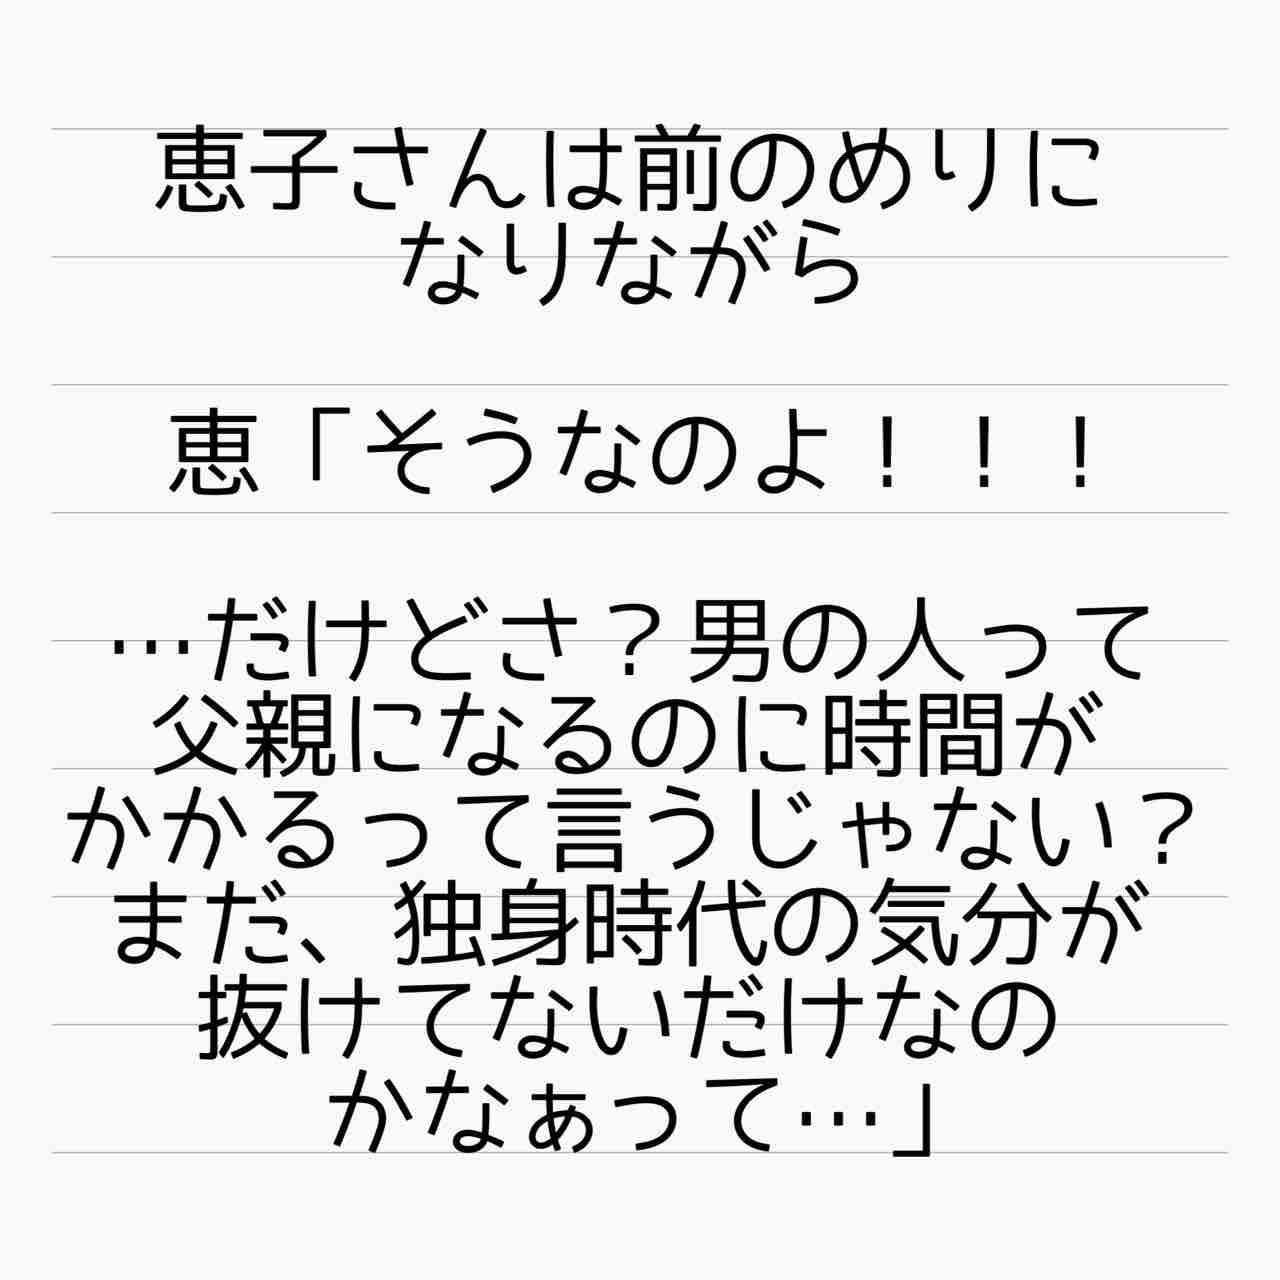 恵子さんは前のめりに
なりながら
恵「そうなのよ！！！
…だけどさ？男の人って
父親になるのに時間が
かかるって言うじゃない？
まだ、独身時代の気分が
抜けてないだけなの
かなぁって…」